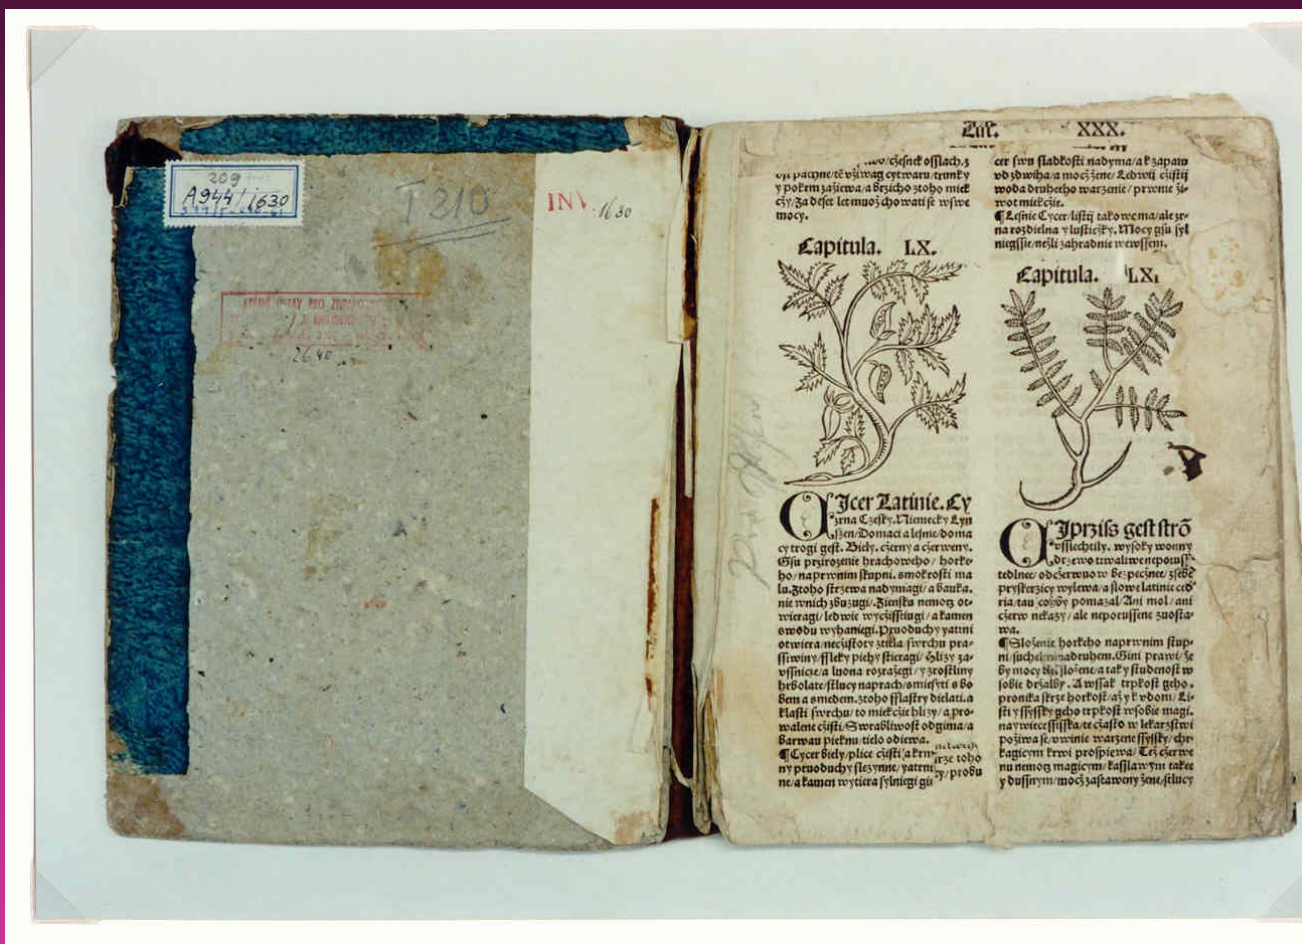 209
A944/1630
T 210
INV. 1630
2640
List. XXX.
y pokrm zažiewa/a brzicho ztoho miek
czy/Za deset let muož chowati se wswe
mocy.
Capitula. LX.
CIcer Latinie. Cy
zrna Czesky. Niemecky Zyn
szen/Domaci a lesnie/doma
cy trogi gest. Biely. czerny a czerweny.
Gsu przirozenie hrachoweho/ horke-
ho/naprwnim stupni. smokrosti ma
lu. Ztoho strzewa nadymagi/a bauka.
nie wnich zbuzugi. Ziensku nemoc ot-
wieragi/ledwie wyczisstiugi/a kamen
swodu wyhaniegi. Pruoduchy yatrni
otwiera/neczistoty ztiela swrchu pra-
ssiwiny/ssleky piehy stieragi/ Hlizy za-
vssnicie/a luona rozražegi/y zrostliny
hrbolate/stlucy naprach/smiesyti s bo
bem a smedem. ztoho fflastry dielati. a
klasti swrchu/to miekczie hlizy/a pro-
walene czisti/Swrabliwost odgima/a
barwau pieknu/tielo odiewa.
¶Cycer biely/plice czisti a krw
ny pruoduchy slezynne/yatrni
ne/a kamen wytiera sylniegi gii
cer swu sladkosti nadyma/a k zapalu
vd zdwiha/a moczžene/Ledwij czistij
woda druheeho warzenie/prwnie ži-
wot miekczie.
¶Lesnie Cycer/listij takowe ma/ale zr-
na rozdielna y lusticzky. Mocy gsu syl
niegssie/nežli zahradnie wewssem.
Capitula. LXI
CIprziss gest stro͂
vssiechtily. wysoky wonny
drzewo trwaliwe neporuss-
tedlnee/odczerwuow bezpecznee/zsebe
pryskerzicy wylewa/a slowe latinie ced
ria/tau cozby pomazal/Ani mol/ani
czerw nekazy/ale neporussene zuosta-
wa.
¶Složenie horkeho naprwnim stup-
ni/suche nadruhem. Gini prawi/že
by mocy složene/a taky studenost w
sobie držalby. A wssak trpkost geho.
pronika skrze horkost/až y k vdom/Li-
sti y ssyssky geho trpkost wsobie magi.
naywiecessisska/te czasto w lekarzstwi
požiwa se/wwinie warzene ssyssky/chr-
kagicym krwi prospiewa/Tež czerwe
nu nemoc magicym/kasslawym takee
y dussnym/mocz zastaweny žene/stlucy